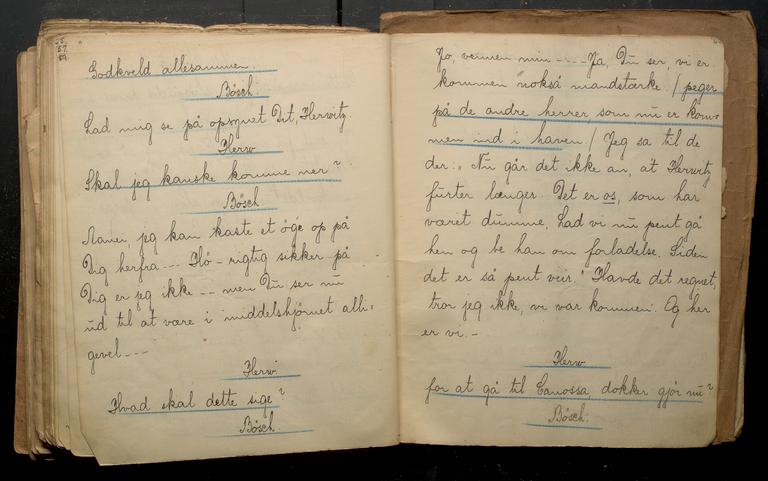 57.
Godkveld allesammen.
Bösch:
Lad mig se på opsynet Dit, Herwitz.
Herw
Skal jeg kanske komme ner?
Bösch
Naner, jeg kan kaste et öge op på
Dig herfra --- Hö - rigtig sikker på
Dig er jeg ikke --- men Du ser nu
ud til at være i middelshjørnet alli=
gevel ---
Herw.
Hvad skal dette sige?
Bösch
Jo, vennen min ---- Ja, Du ser, vi er
kommen nokså mandstærke / peger
på de andre herrer som nu er kom=
men ind i haven / Jeg sa til de
der: "Nu går det ikke an, at Herwitz
furter længer. Det er os, som har
været dumme, Lad vi nu pent gå
hen og be han om forladelse, Siden
det er så pent veir." Havde det regnet,
tror jeg ikke, vi var kommen. Og her
er vi. -
Herw
for at gå til Canossa, dokker gjör nu?
Bösch: